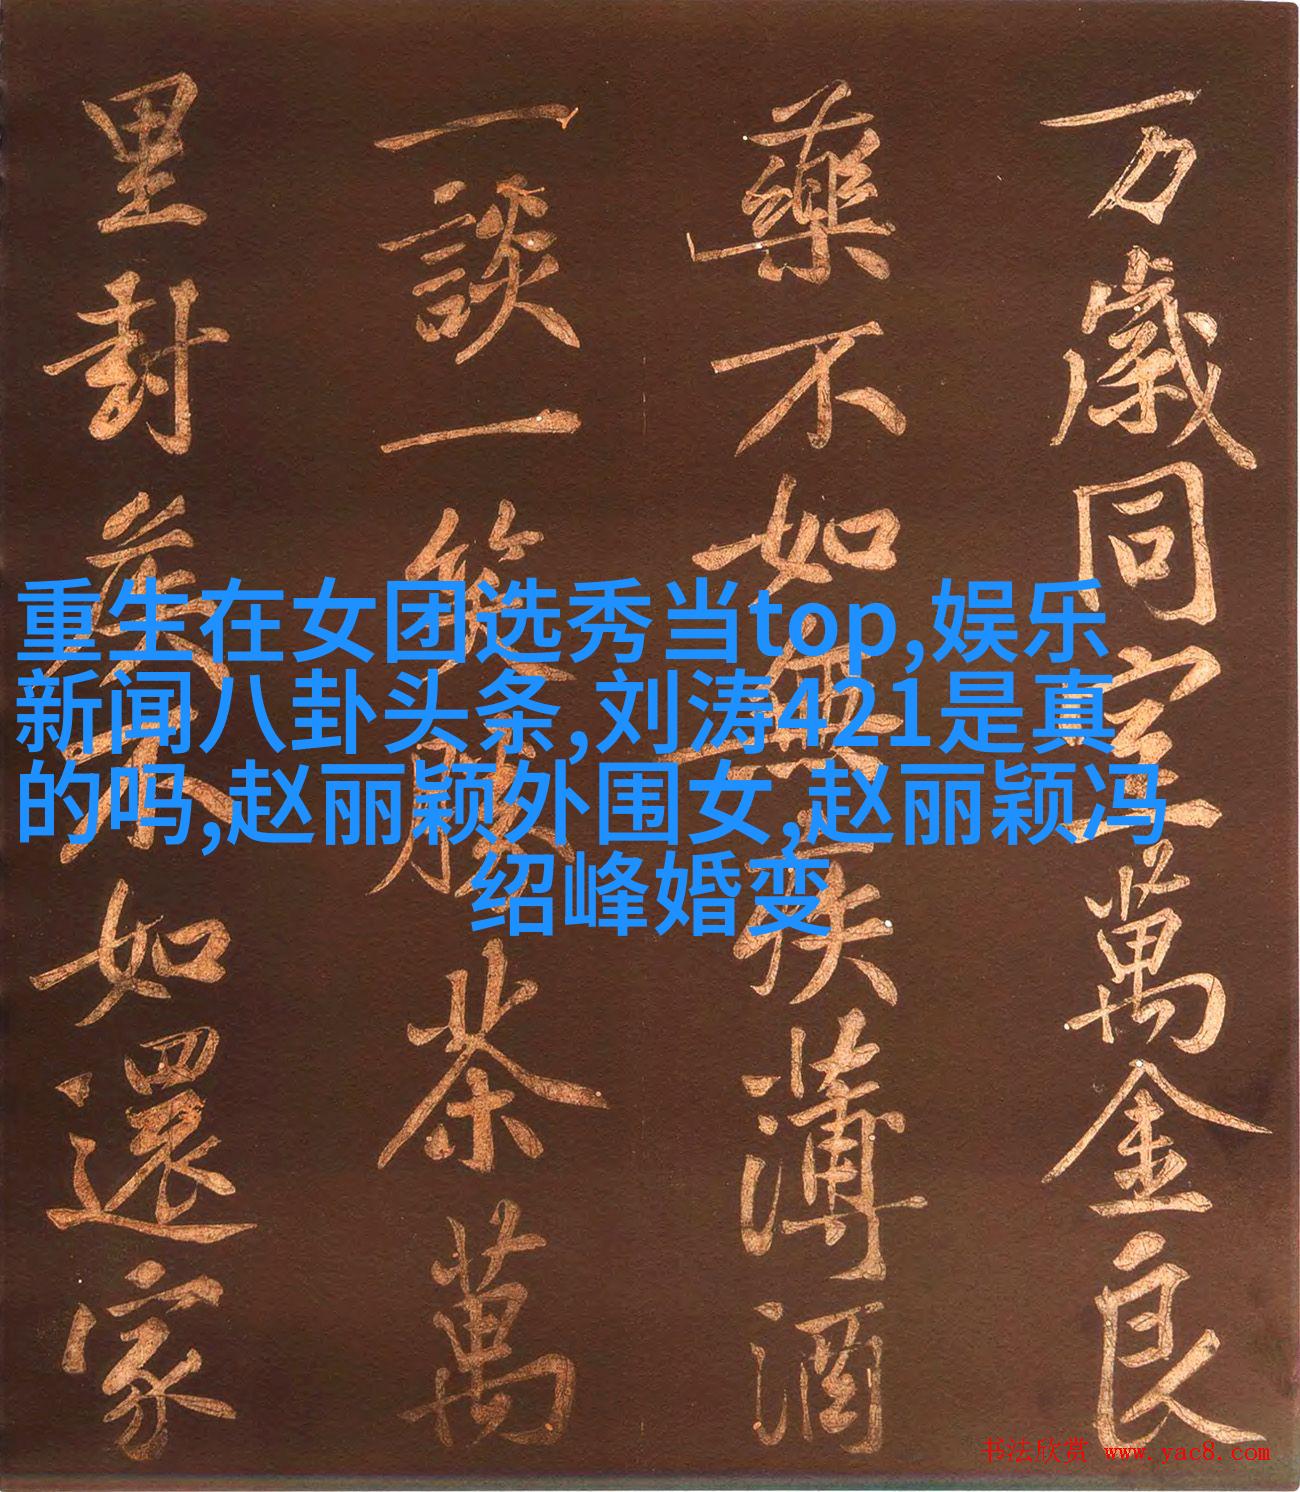 万歲同室萬金良
藥不如無疾薄酒
一談一笑勝茶萬
里封矦不如還家
重生在女团选秀当top,娱乐
新闻八卦头条,刘涛421是真
的吗,赵丽颖外围女,赵丽颖冯
绍峰婚变
书法欣赏 www.yac8.com